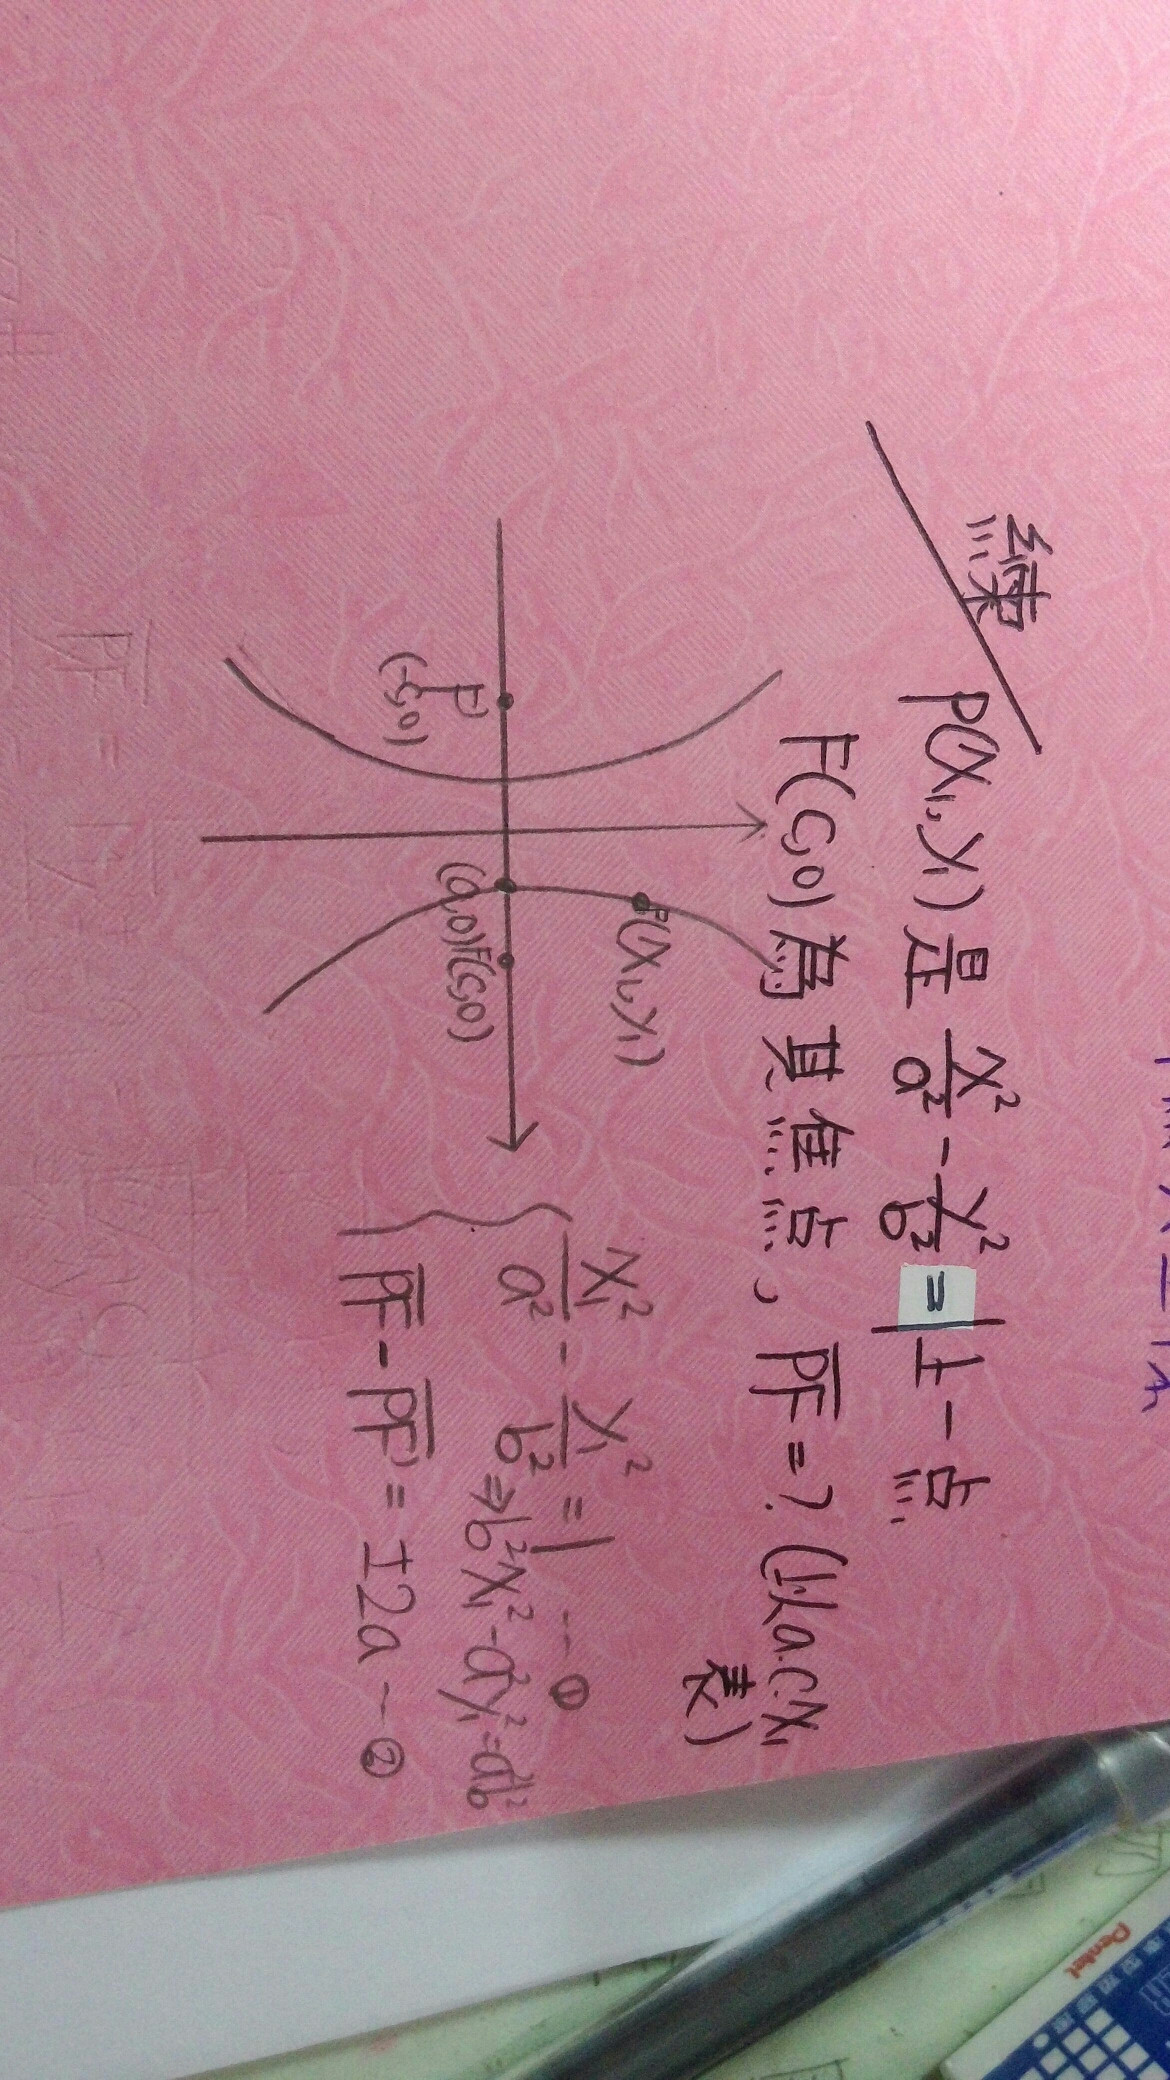 練 P(x₁,y₁)是 x²/a² - y²/b² = 1上一点
F(c,0)為其焦点,PF=?(以a.c.x₁
表)
P(x₁,y₁)
F'
(-c,0)
(a,0) F(c,0)
x₁²/a² - y₁²/b² = 1 … ①
⇒ b²x₁² - a²y₁² = a²b²
PF - PF' = ±2a … ②
Pentel